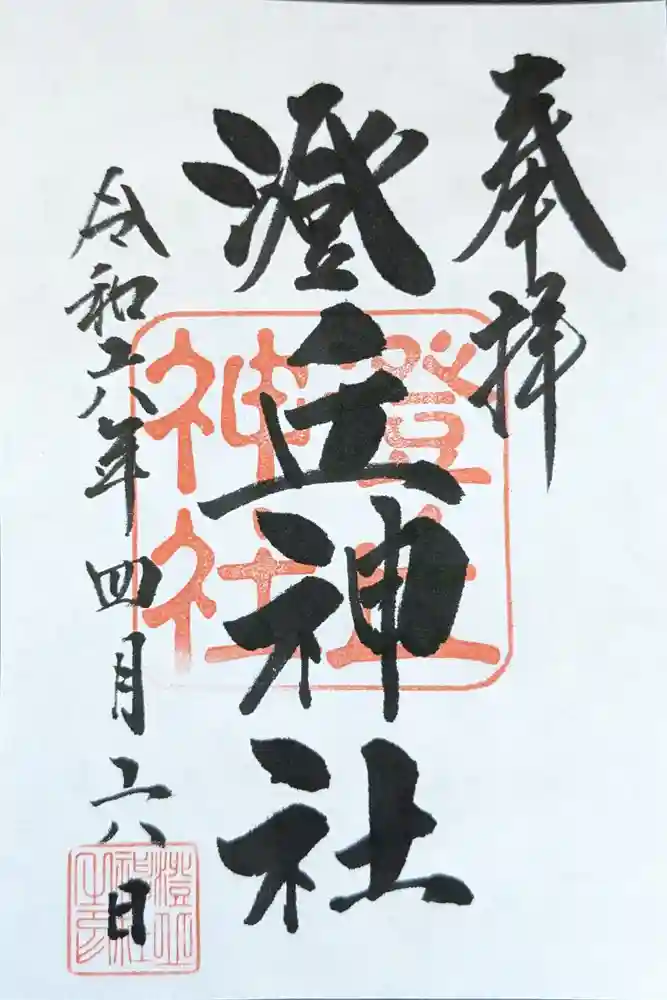 奉拝
澄丘神社
澄丘
神社
令和六年四月六日
澄丘
神社
之印